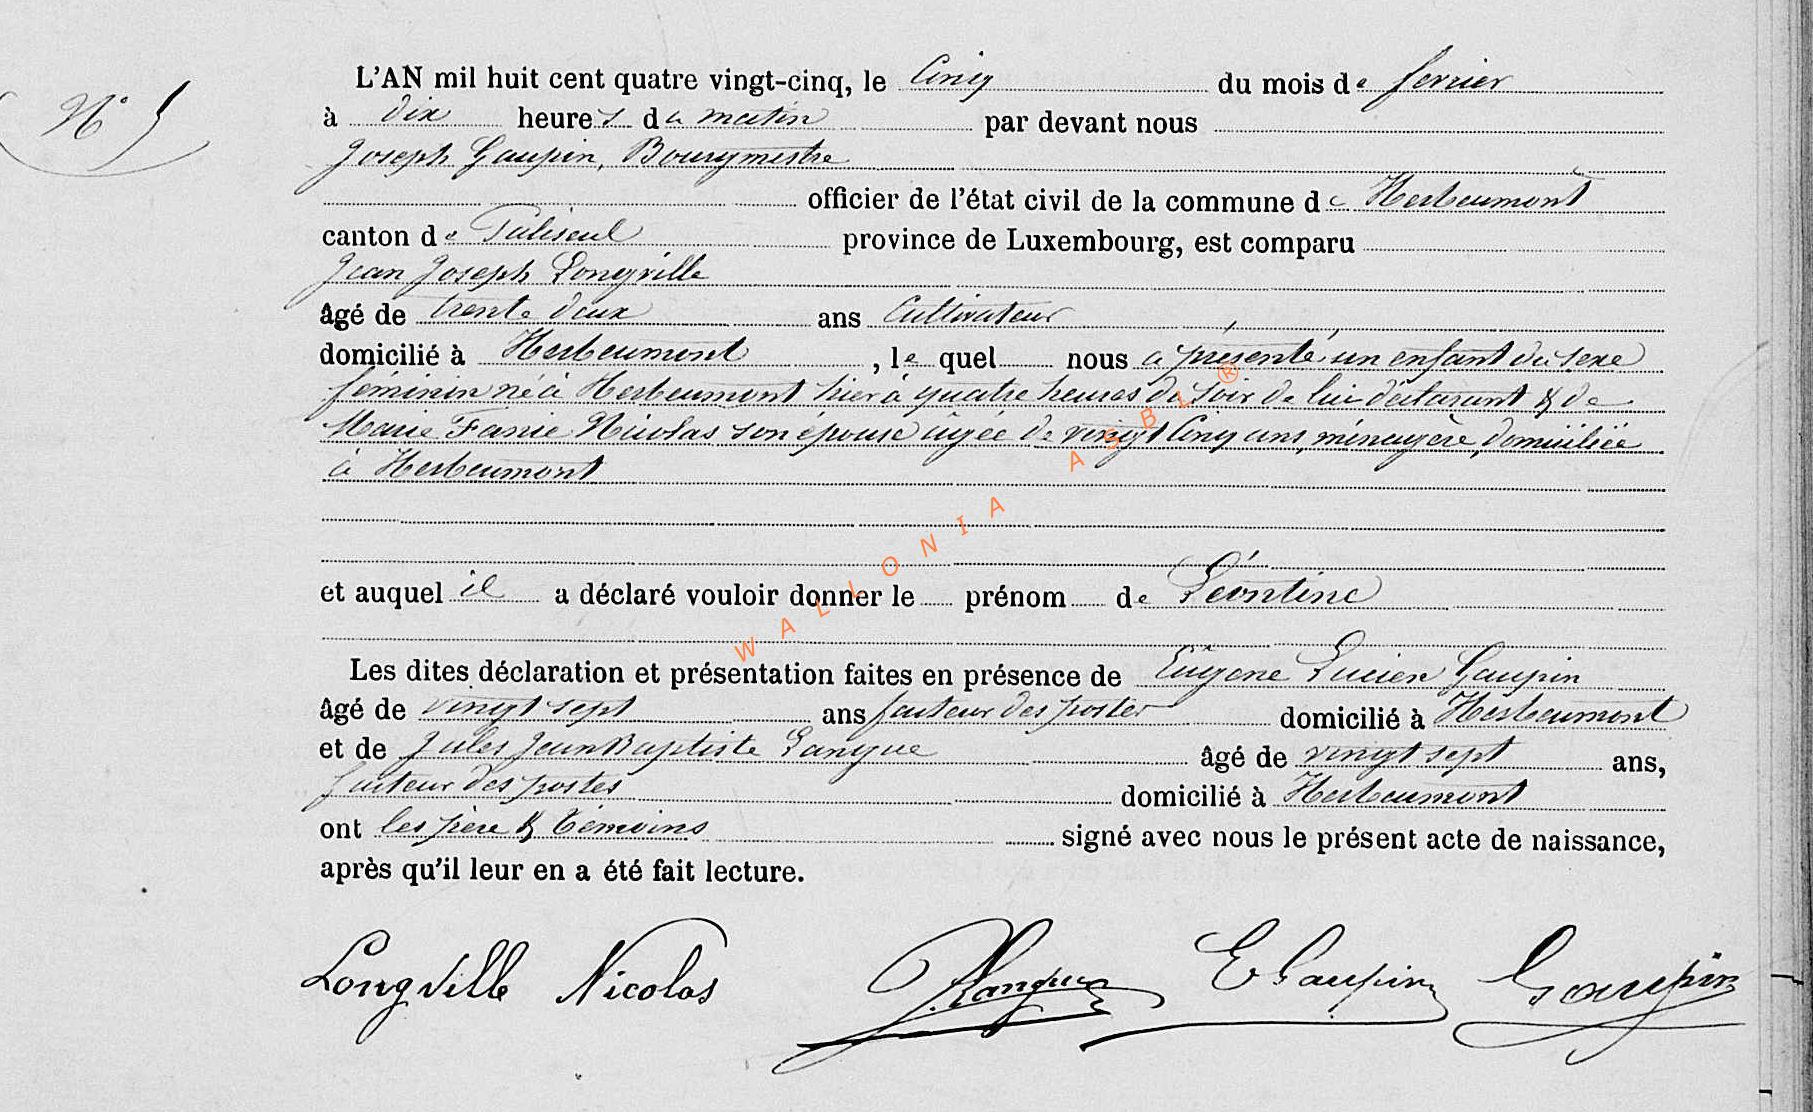 N° 5
L'AN mil huit cent quatre vingt-cinq, le Cinq du mois de fevrier
à dix heures du matin par devant nous
Joseph Gaupin, Bourgmestre
officier de l'état civil de la commune de Herbeumont
canton de Paliseul province de Luxembourg, est comparu
Jean Joseph Longville
âgé de trente deux ans Cultivateur,
domicilié à Herbeumont, lequel nous a présenté un enfant du sexe
féminin né à Herbeumont hier à quatre heures du soir de lui déclarant & de
Marie Fanie Nicolas son épouse âgée de vingt cinq ans, ménagère, domiciliée
à Herbeumont
et auquel il a déclaré vouloir donner le prénom de Léontine
Les dites déclaration et présentation faites en présence de Eugène Lucien Gaupin
âgé de vingt sept ans facteur des postes domicilié à Herbeumont
et de Jules Jean Baptiste Langue âgé de vingt sept ans,
facteur des postes domicilié à Herbeumont
ont les père & témoins signé avec nous le présent acte de naissance,
après qu'il leur en a été fait lecture.
Longville Nicolas J Langue E Gaupin Gaupin
WALLONIA ASBL ®